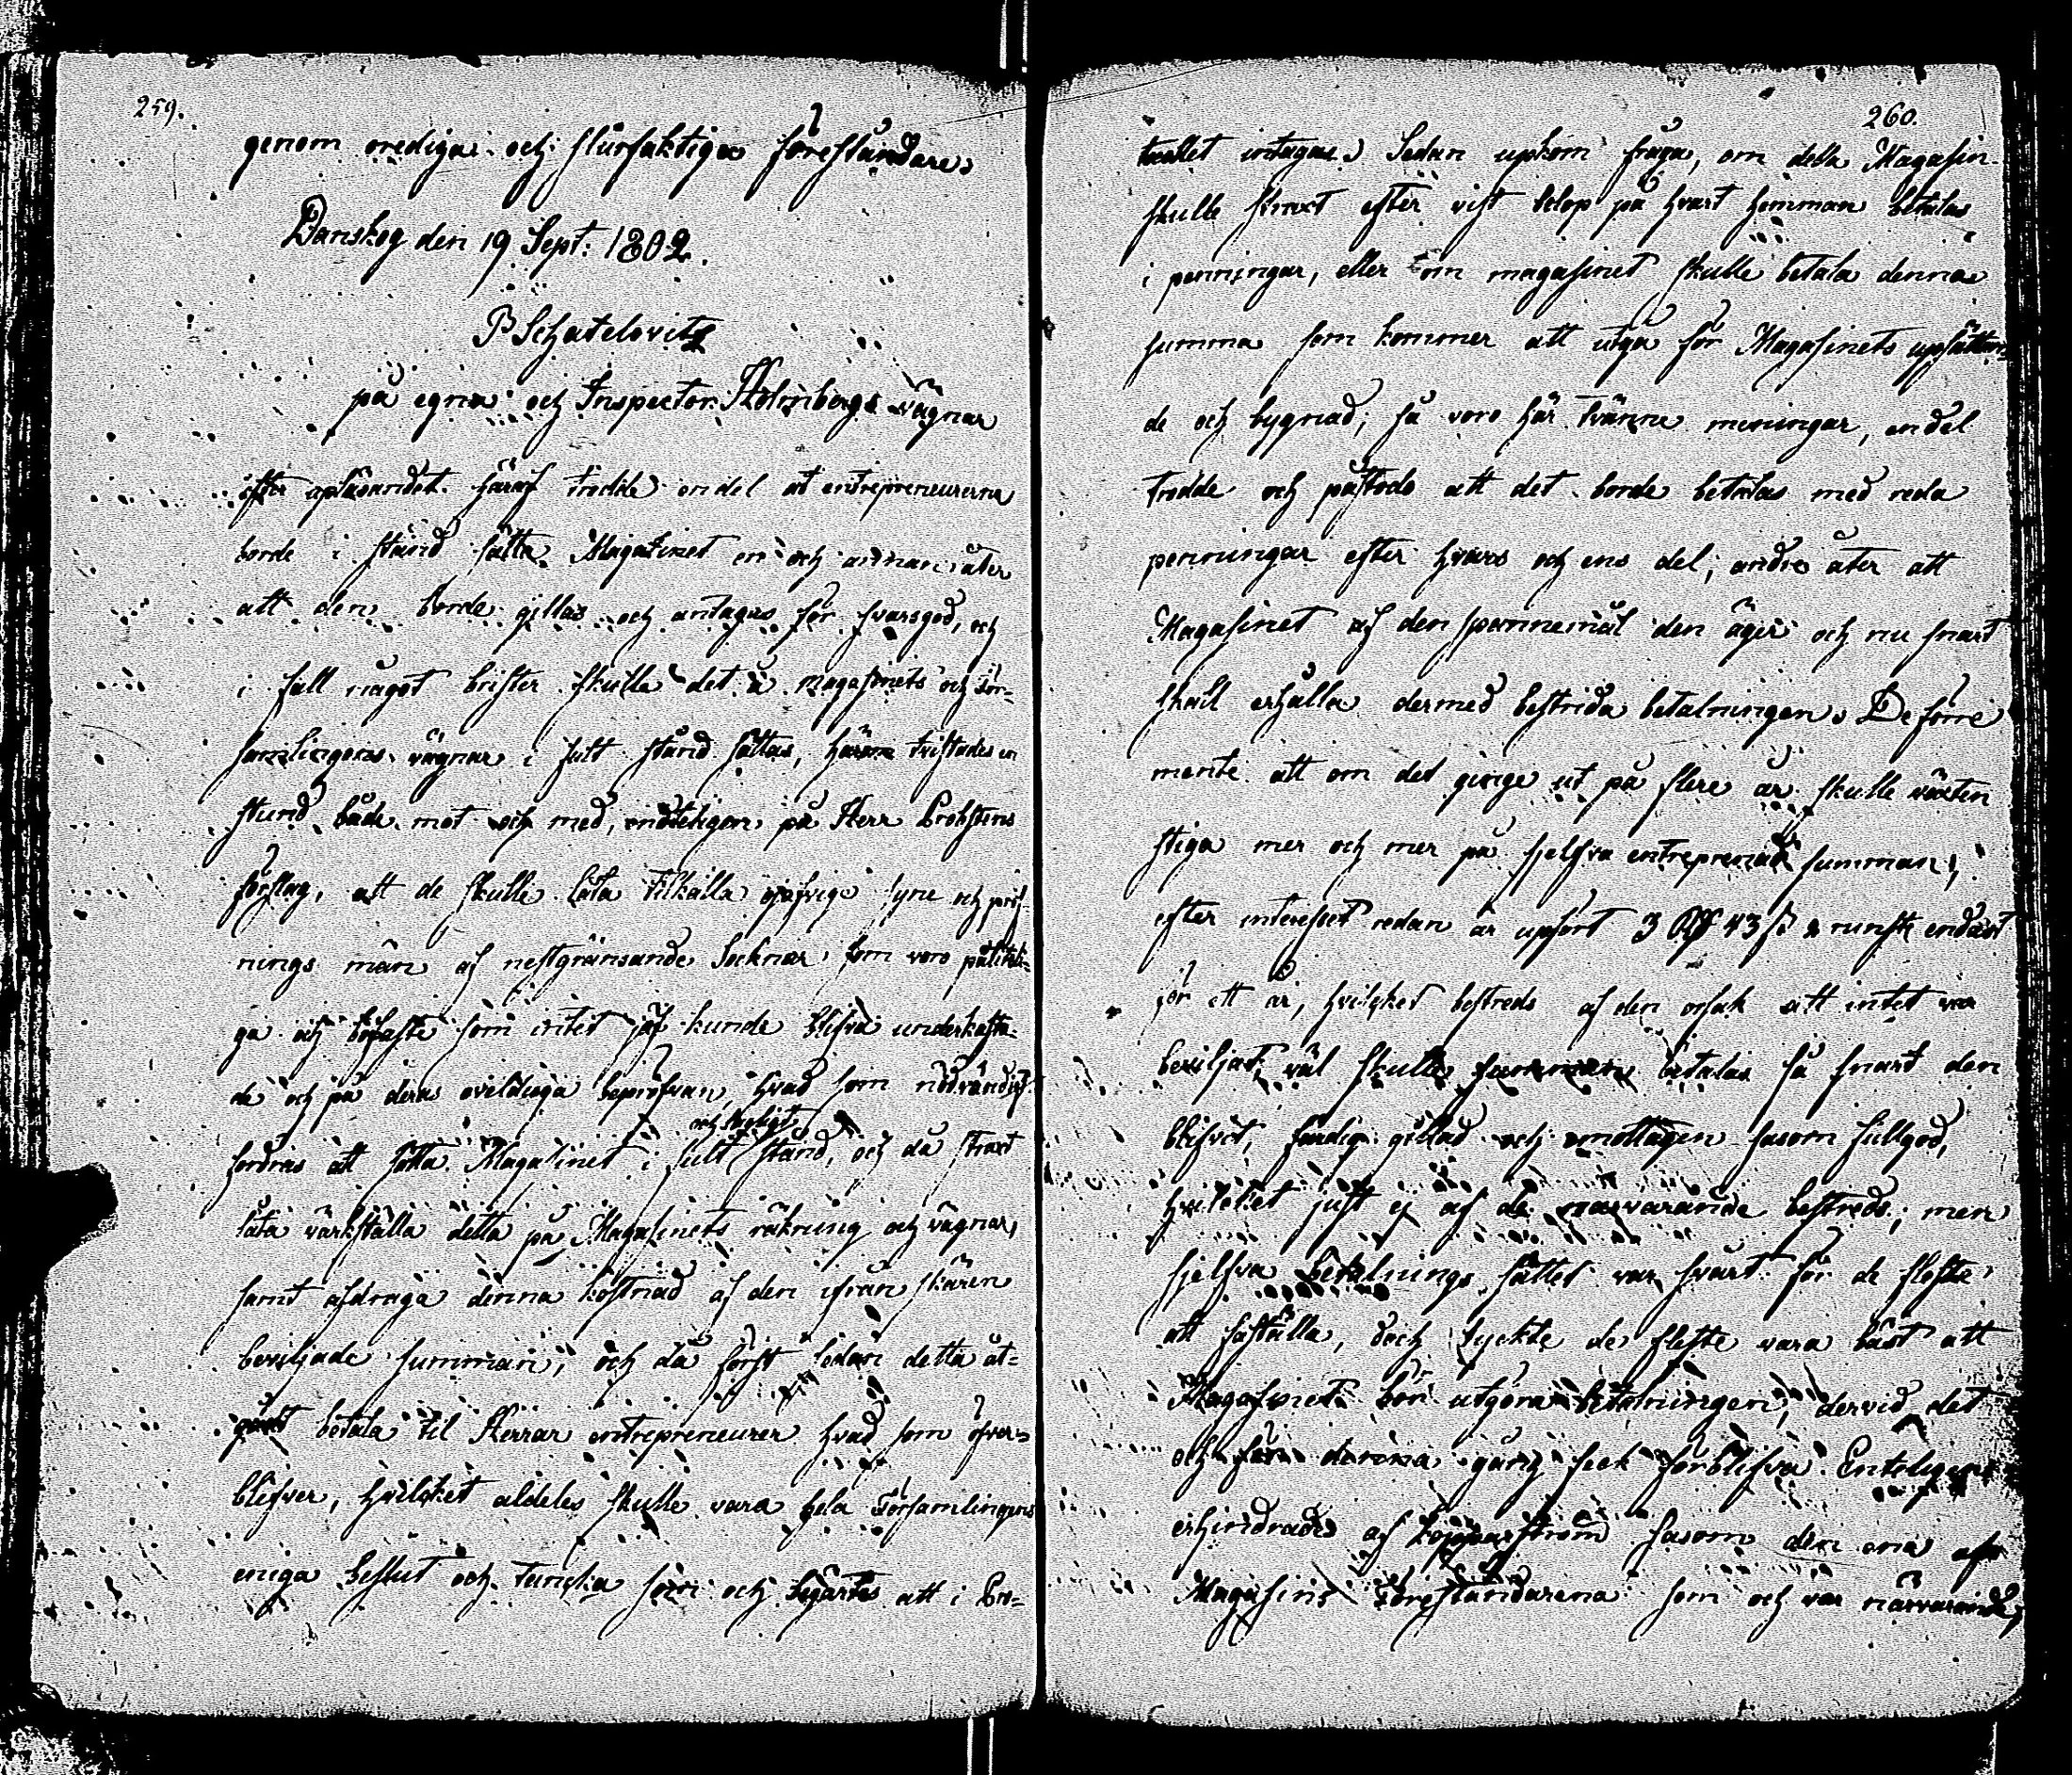 259.
genom orediga och slursaktiga föreståndare.
Danskog den 19 Sept: 1802.
P Schatelovitz
på egna och Inspector Holmbergs vägnar
efter upläsandet häraf trodde en del at entrepreneurerne
borde i stånd sätta Magasinet en och annan åter
att den borde gillas och antagas för svarsgod, och
i fall något brister skulle det å magasinets och För-
samlingens vägnar i fult stånd sättas, härom tvistades en
stund både mot och med, endteligen på Herr Probstens
förslag, att de skulle låta tilkalla ojäfvige syne och pröf-
nings män af nestgränsande Socknar som voro pålitli-
ga och som intet jäf kunde blifva underkasta-
de och på dera ovelduga bepröfvan, hvad som nödvändigt
och skeligt
fordras att sätta Magasinet i fult stånd, och då straxt
låta värkställa detta på Magasinets räkning och vägnar,
samt afdraga denna kostnad af den ifrån skären
beviljade summan, och då först sedan detta åt-
gått betala til Herrar entrepreneurer hvad som öfver-
blifver, hvilcket aldeles skulle vara hela Församlingens
eniga beslut och tancka som och begärtes att i Pro-
260.
tocollet intagas. Sedan upkom fråga, om detta Magasin
skulle straxt efter vist belop på hvart hemman betalas
i penningar, eller om magasinet skulle betala denna
summa som kommer att utgå för Magasinets upsättan-
de och bygnad; så voro här tvänne meningar, en del
trodde och påstodo att det borde betalas med reda
penningar efter hvars och ens del; andre åter att
Magasinet af den spannemål den äger och nu snart
skall erhålla dermed bestrida betalningen. De förre
mente att om det ginge ut på flere år skulle växten
stiga mer och mer på sjelfva entreprenad summan,
efter interesset redan är upfört 3 43 runst: endast
för ett år, hvilcket bestreds af den orsak att intet var
beviljat, väl skulle summan betalas så snart den
blifvit färdig gillad och emottagen såsom fullgod,
hvilcket just ej af de närvarande bestreds; men
sjelfva betalnings sättet var svårt för de fleste
att faställa, doch tyckte de fleste vara bäst att
Magasinet bör utgöra betalningen, dervid det
och för denna gång feck förblifva. Enteligen
erhindrade af Kopparström såsom den ena af
Magasins Föreståndarena som och var närvarande,